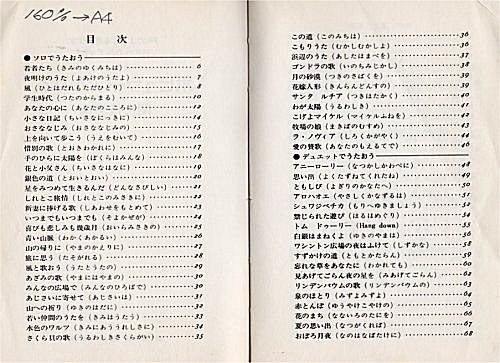 160% → A4
目次
●ソロでうたおう
若者たち（きみのゆくみちは） 6
夜明けのうた（よあけのうたよ） 7
風（ひとはだれもただひとり） 8
学生時代（つたのからまる） 10
あなたの心に（あなたのこころに） 12
小さな日記（ちいさなにっきに） 14
おさななじみ（おさななじみの） 15
上を向いて歩こう（うえをむいて） 16
惜別の歌（とおきわかれに） 17
手のひらに太陽を（ぼくらはみんな） 18
花と小父さん（ちいさなはなに） 19
銀色の道（とおいとおい） 20
星をみつめて生きるんだ（どんなさびしい） 21
しれとこ旅情（しれとこのみさきに） 22
新妻に捧げる歌（しあわせをもとめて） 23
いつまでもいつまでも（そよかぜが） 24
喜びも悲しみも幾歳月（おいらみさきの） 25
青い山脈（わかくあかるい） 26
山の帰りに（やまのかえりに） 27
旅に思う（たそがれる） 28
風と歌おう（うたとうたの） 29
あざみの歌（やまにはやまの） 30
みんなの広場で（みんなのひろばで） 30
あじさいに寄せて（あたさいは） 31
山への祈り（ゆきのはだに） 32
若い仲間のうたを（きみはうたう） 33
水色のワルツ（きみにおうりれしさに） 34
さくら貝の歌（うるわしきさくらがい） 35
この道（このみちは） 36
こもりうた（むかしむかしよ） 36
浜辺のうた（あしたはまべを） 37
ゴンドラの歌（いのちみじかし） 38
月の砂漠（つきのさばくを） 39
花嫁人形（きんらんどんすの） 39
サンタ ルチア（つきはたかく） 40
わが太陽（うるわしき） 41
こげよマイケル（マイケルふねを） 42
牧場の娘（まきばのむすめ） 43
ラ・ノヴィア（しろくかがやく） 44
愛の賛歌（あなたのもえるてで） 46
●デュエットでうたおう
アニーローリー（なつかしかわべに） 48
思い出（よくたずねてくれたね） 49
ともしび（よぎりのかなたへ） 50
アロハオエ（やさしくかなずるは） 51
シュワジベチカ（もりへゆきましょう） 52
禁じられた遊び（はるはめぐり） 54
トム ドゥーリー（Hang down） 55
白銀はまねくよ（ゆきのやまは） 56
ワシントン広場の夜はふけて（しずかな） 58
すずかけの道（ともとかたらん） 59
忘れな草をあなたに（わかれても） 60
見あげてごらん夜の星を（みあげてごらん） 62
リンデンバウムの歌（リンデンバウムの） 63
泉のほとり（みずよみずよ） 64
赤とんぼ（ゆうやけこやけの） 65
花のまち（なないろのたにを） 66
夏の思い出（なつがくれば） 67
おぼろ月夜（なのはなばたけに） 68